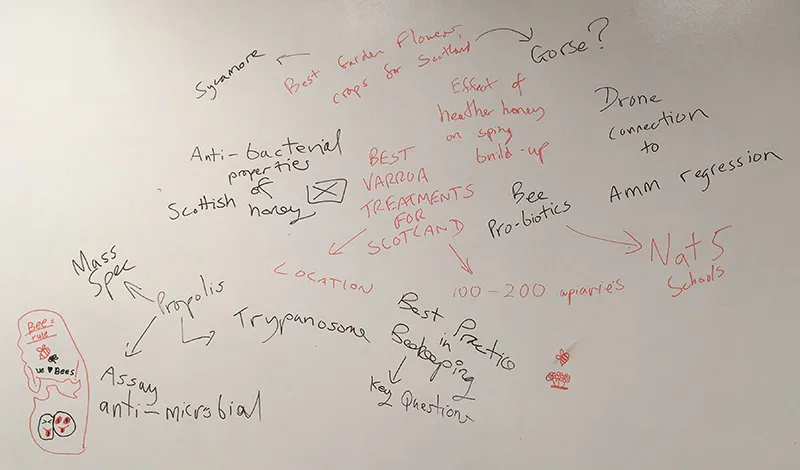 Sycamore
Best Garden Flowers,
crops for Scotland
Gorse?
Effect of
heather honey
on sping
build-up
Drone
connection
to
Amm regression
Anti-bacterial
properties
of
Scottish honey
BEST
VARROA
TREATMENTS
FOR
SCOTLAND
LOCATION
100-200 apiaries
Bee
Pro-biotics
Nat 5
Schools
Mass
Spec
Propolis
Trypanosome
Assay
anti-microbial
Best Practice
in
Beekeeping
Key Questions
Bees
rule
We ♥ Bees